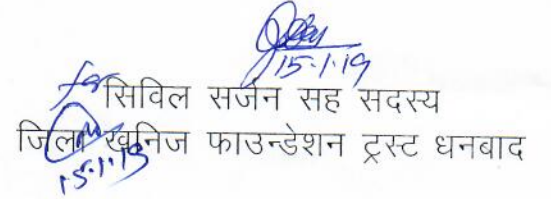 15.1.19
for सिविल सर्जन सह सदस्य
जिला खनिज फाउन्डेशन ट्रस्ट धनबाद
15.1.19